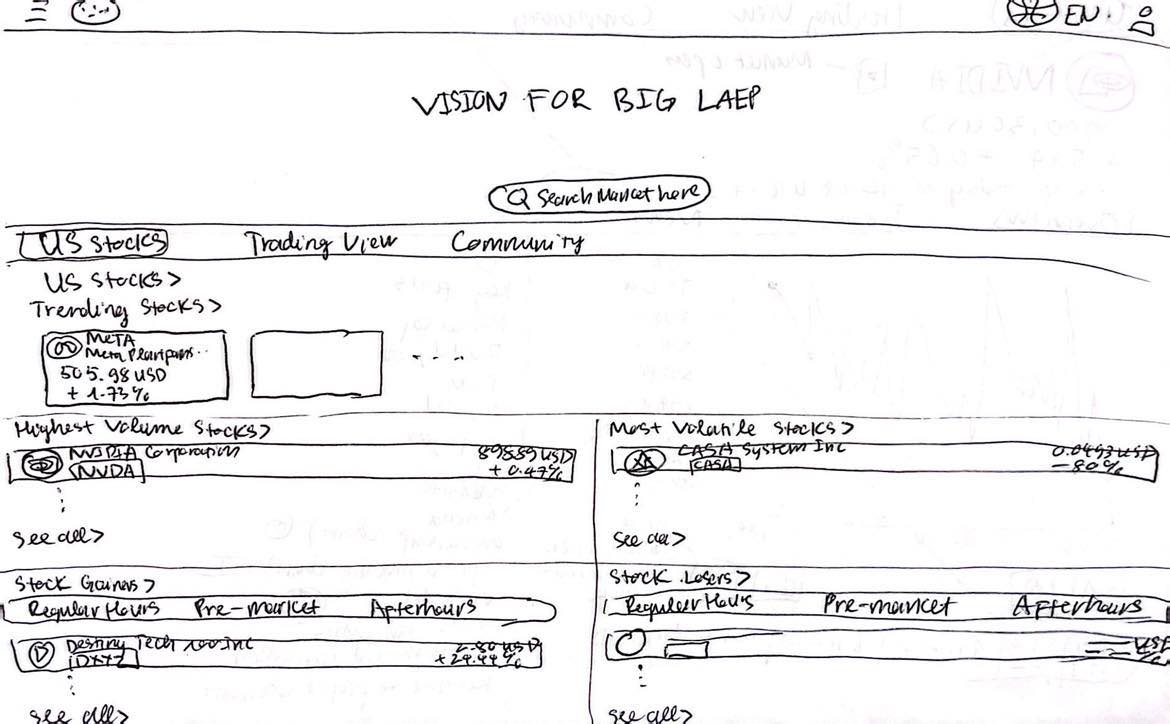 EN
VISION FOR BIG LAEP
Search Market here
US Stocks Trading View Community
US Stocks >
Trending Stocks >
META
Meta
505.98 USD
+ 1.73%
Highest Volume Stocks >
NVIDIA Corporation
NVDA
898.89 USD
+ 0.47%
see all >
Most Volatile Stocks >
CASA System Inc
CASA
0.0493 USD
- 80%
see all >
Stock Gainers >
Regular Hours Pre-market Afterhours
Destiny Tech 100 Inc
DXYZ
USD
+ 29.44%
see all >
Stock Losers >
Regular Hours Pre-market Afterhours
USD
%
see all >